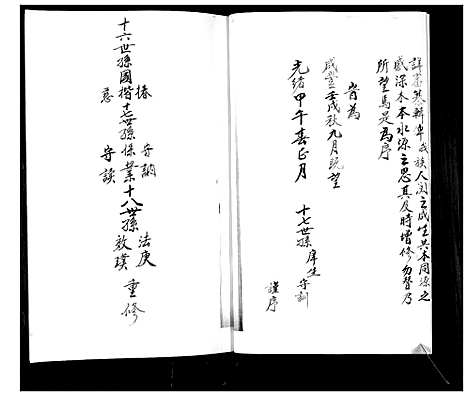 詳墓基輯譜成族人閱之咸生共本同源之
感深木本水源之思其及時增修勿替乃
所望焉是為序
時為
咸豐壬戌秋九月既望
光緒甲午春正月
十七世孫庠生守訓
謹序
十六世孫國楷 椿 慈
十七世孫保業 守訥 守謨
十八世孫 法庚 效璞 重修